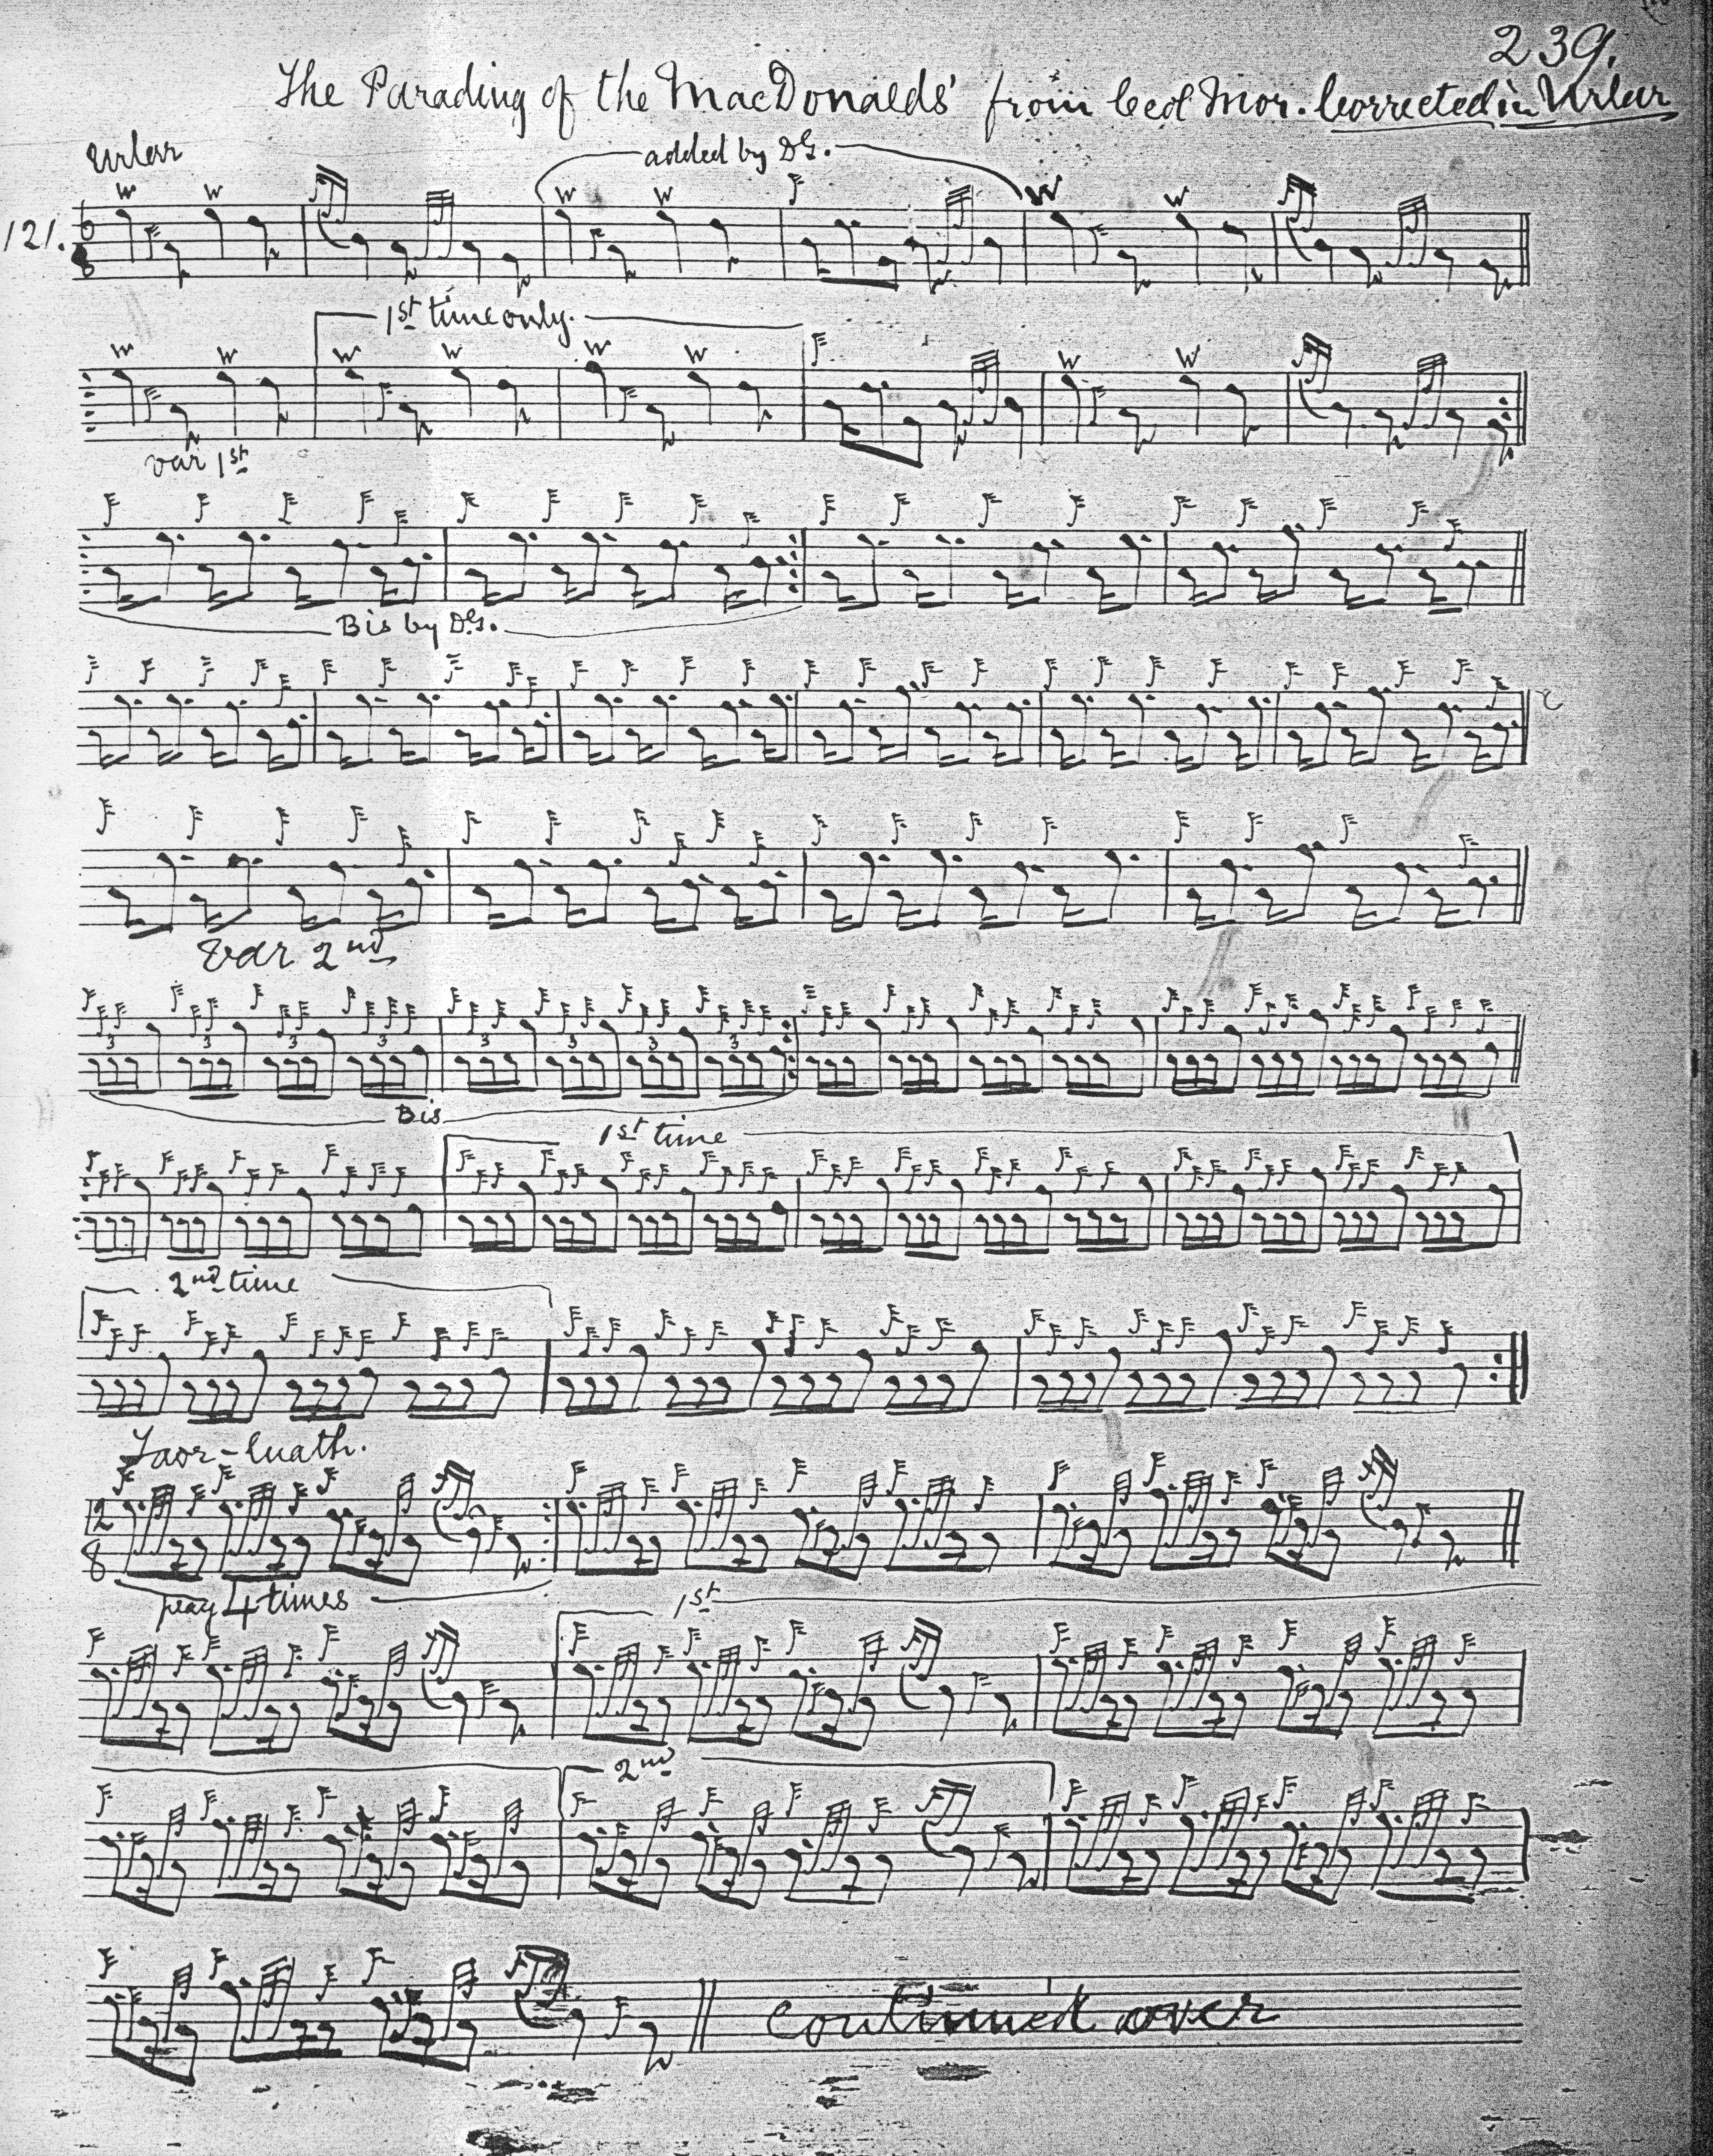 239.
The Parading of the MacDonalds' from Ceol Mor. Corrected in Urlar
Urlar
added by DG.
121.
6
8
1st time only.
var 1st
Bis by DG.
Var 2nd
3 3 3 3 3 3 3 3
Bis
1st time
2nd time
Taor-luath.
2
8
play 4 times
1st
2nd
Continued over